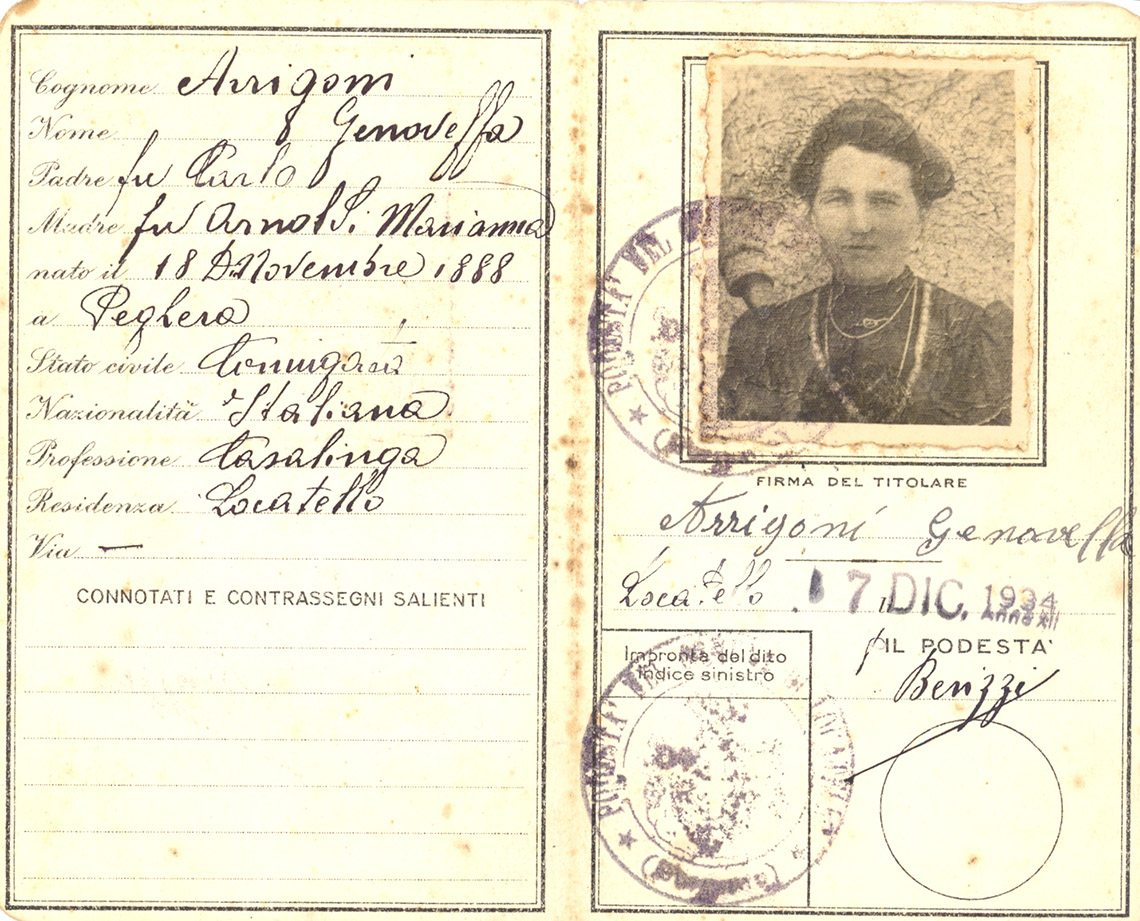 Cognome Arrigoni
Nome Genoveffa
Padre fu Carlo
Madre fu Arnoldi Marianna
nato il 18 Novembre 1888
a Peghera
Stato civile
Nazionalità Italiana
Professione Casalinga
Residenza Locatello
Via —
CONNOTATI E CONTRASSEGNI SALIENTI
PODESTA' DEL
FIRMA DEL TITOLARE
Arrigoni Genoveffa
Locatello 17 DIC. 1934
ANNO XII
IL PODESTA'
Berizzi
Impronta del dito
indice sinistro
PODESTA' DEL